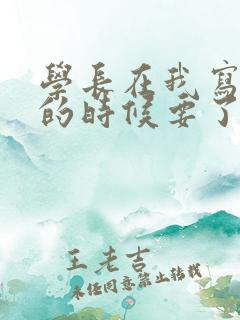 學長在我寫
的時候要了
王老吉
未經同意禁止轉載